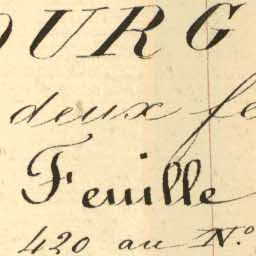 OURG
deux fe
Feuille
420 au N.º